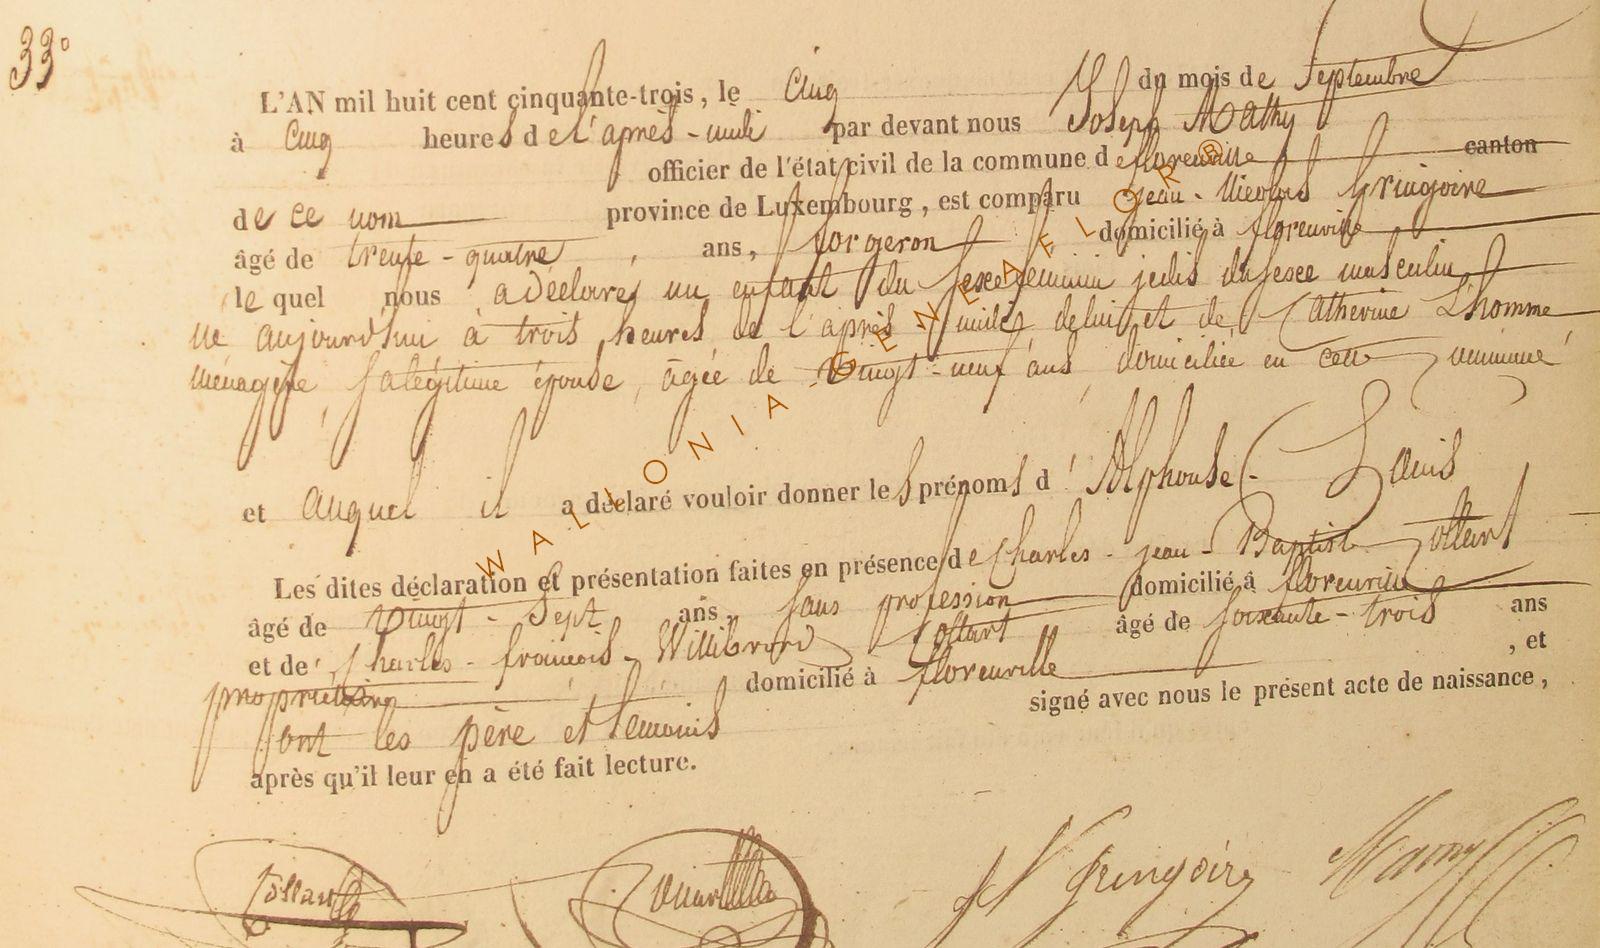 33°
L'AN mil huit cent cinquante-trois, le cinq du mois de Septembre
à cinq heures de l'après-midi par devant nous Joseph Mathy
officier de l'état civil de la commune de florenville canton
de ce nom province de Luxembourg, est comparu jean-Nicolas Gringoire
âgé de trente-quatre ans, forgeron domicilié à florenville
lequel nous a déclaré un enfant du sexe feminin jedis du sexe masculin
né aujourd'hui à trois heures de l'après midi, de lui et de Catherine Lhomme
ménagère, sa légitime épouse, âgée de vingt-neuf ans, domiciliée en cette commune
et auquel il a déclaré vouloir donner les prénoms d'Alphonse-Louis
Les dites déclaration et présentation faites en présence de Charles-jean-Baptiste Collart
âgé de vingt-Sept ans, sans profession domicilié à florenville
et de Charles-françois-Willibrord Collart âgé de soixante-trois ans
propriétaire domicilié à florenville, et
ont les père et témoins signé avec nous le présent acte de naissance,
après qu'il leur en a été fait lecture.
Collart JN Gringoire Mathy
WALLONIA GENEAFLOR®